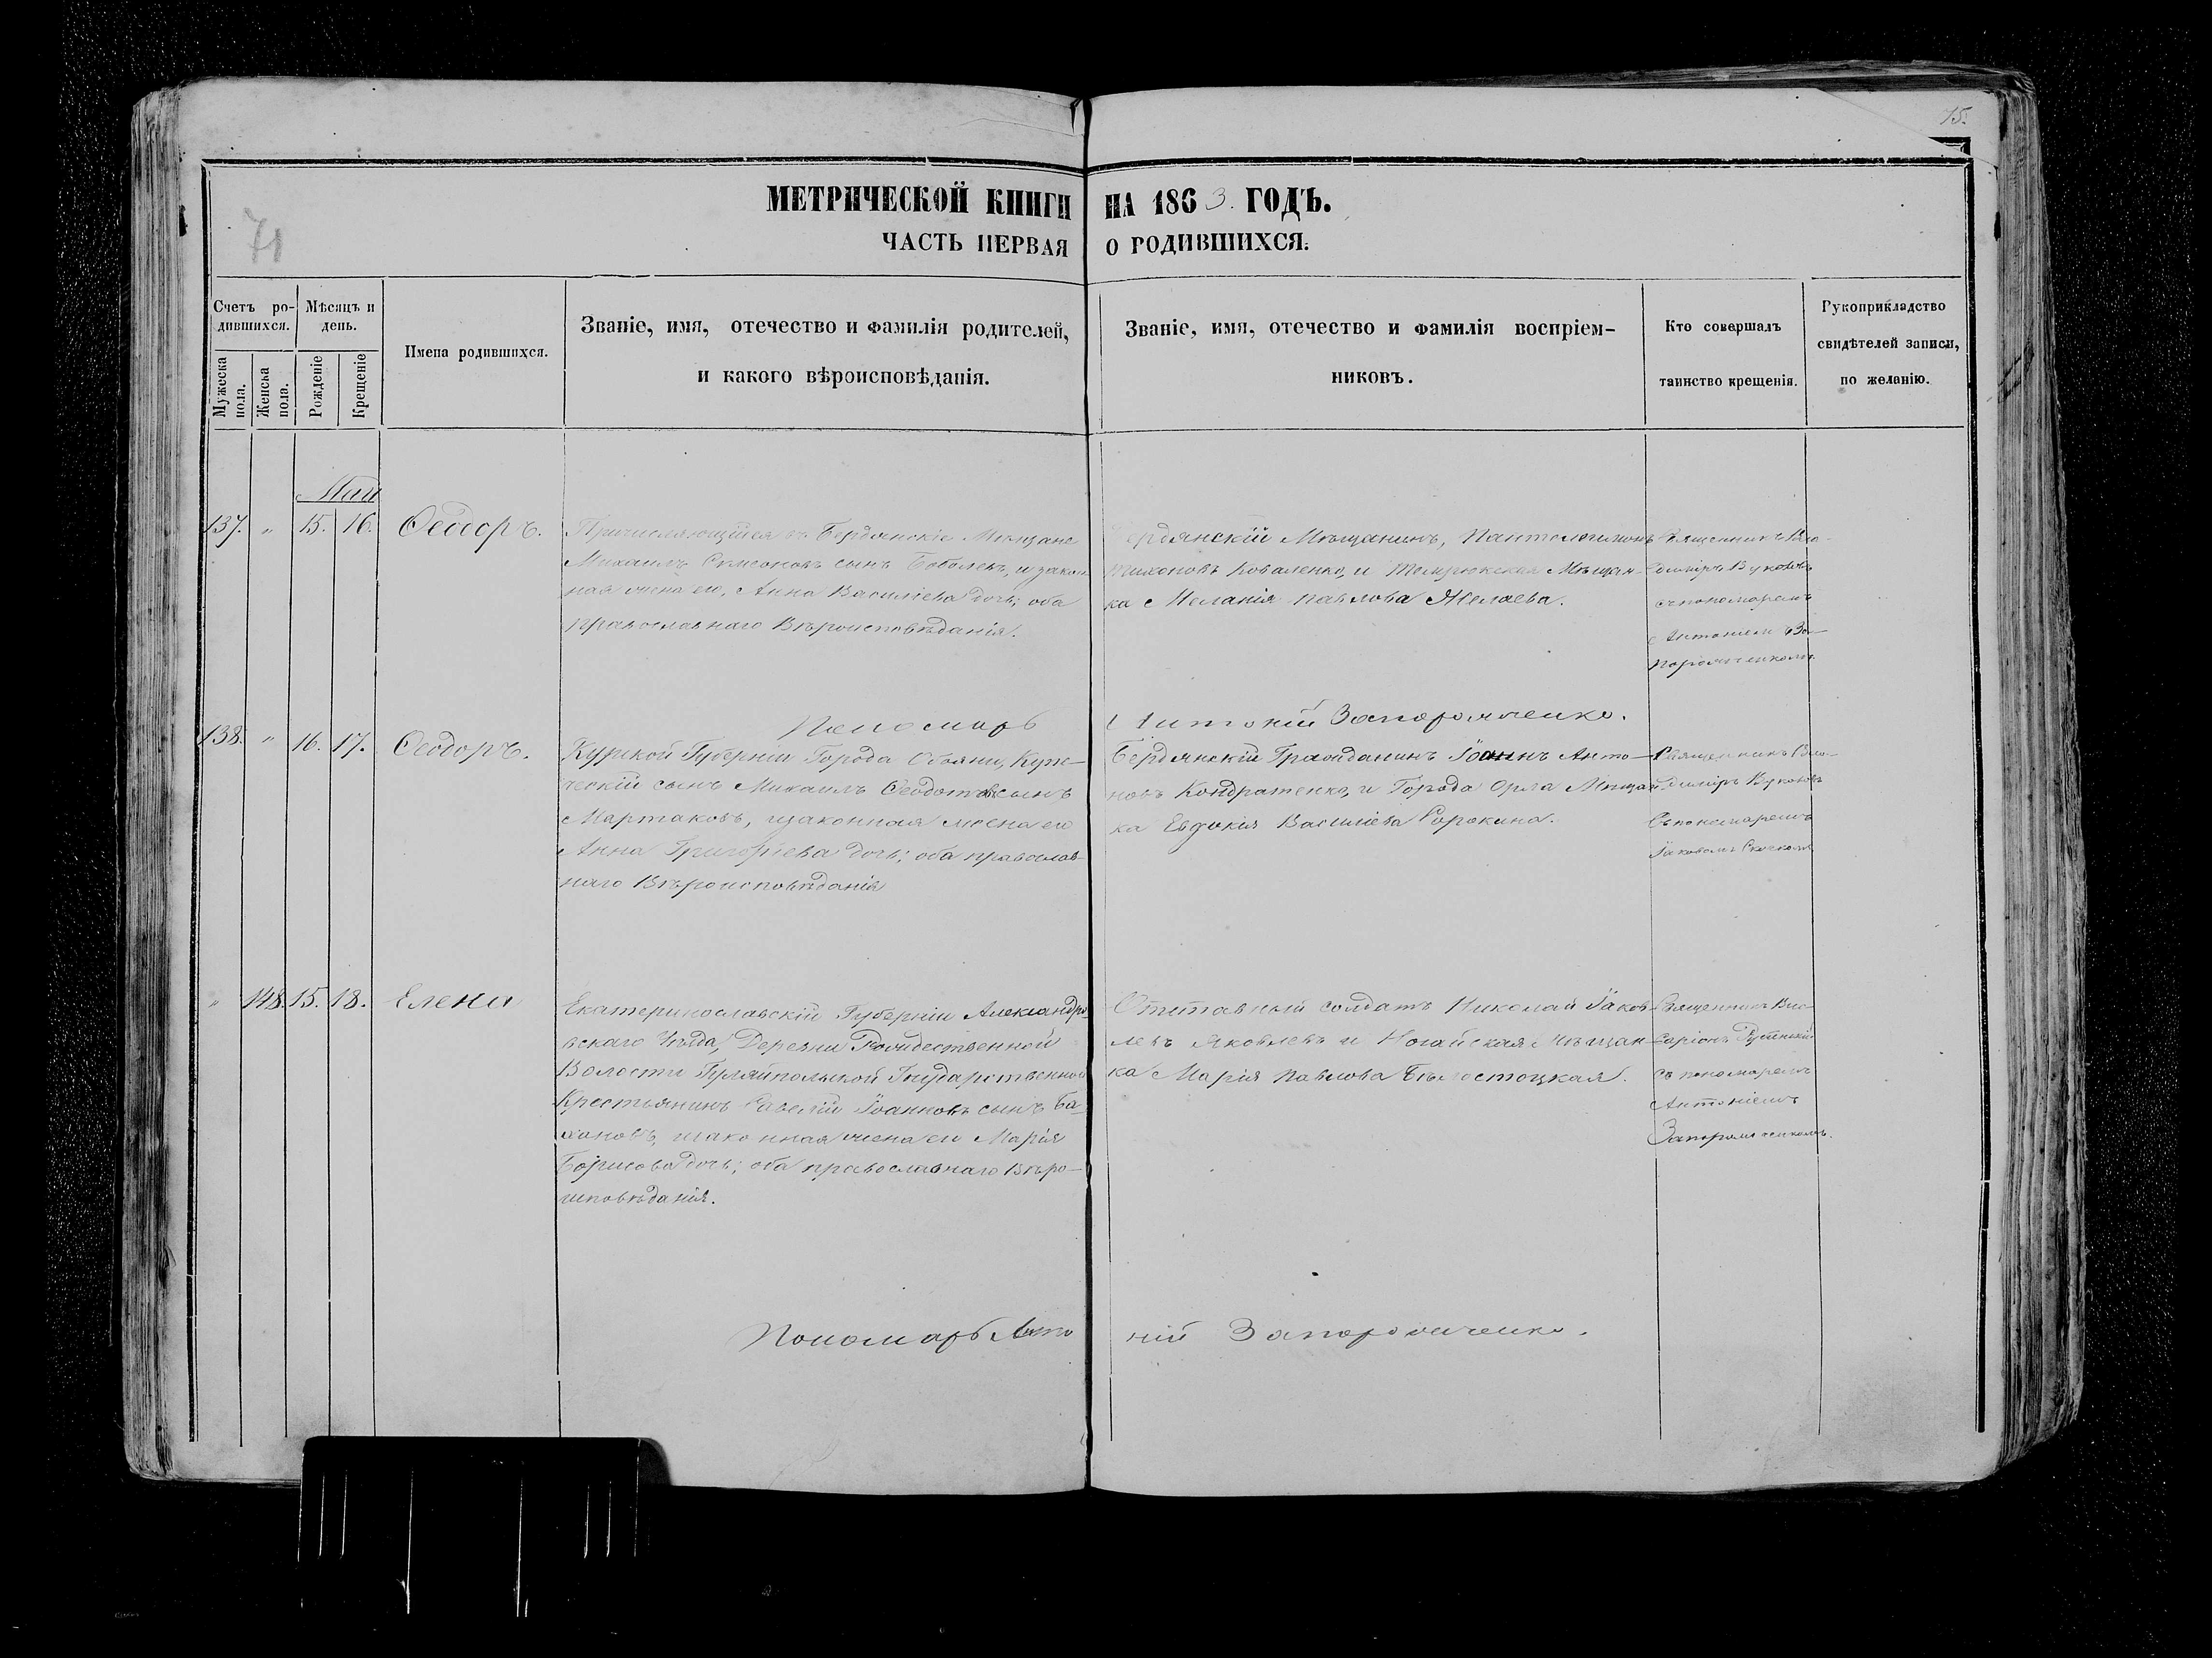 75.
МЕТРИЧЕСКОЙ КНИГИ НА 1863. ГОДЪ.
71
ЧАСТЬ ПЕРВАЯ О РОДИВШИХСЯ.
Счетъ ро-
дившихся.
Мужеска пола.
Женска пола.
Мѣсяцъ и
день.
Рожденіе
Крещеніе
Имена родившихся.
Званіе, имя, отечество и фамилія родителей,
и какого вѣроисповѣданія.
Званіе, имя, отечество и фамилія воспріем-
никовъ.
Кто совершалъ
таинство крещенія.
Рукоприкладство
свидѣтелей записи,
по желанію.
Маи
137. " 15. 16. Ѳеодоръ.
Причисляющійся въ Бердянскіе Мѣщане
Михаилъ Симеоновъ сынъ Боболевъ, и закон
ная жена его, Анна Василіева дочь; оба
православнаго Вѣроисповѣданія.
ердянскій Мѣщанинъ, Пантелеимонъ
Тихоновъ Коваленко, и Темрюкская Мѣщан-
ка Меланія Павлова Желаева.
Священникъ Вла-
димиръ Вуковъ
съ пономаремъ
Антоніемъ За-
порожченкомъ
Пономарь Антоній Запорожченко.
138. " 16. 17. Ѳеодоръ.
Курской Губерніи Города Обояни, Купе-
ческій сынъ Михаилъ Ѳеодотовъ сынъ
Мартаковъ, и законная жена его
Анна Григорьева дочь; оба православ-
наго Вѣроисповѣданія
Бердянскій Гражданинъ Іоаннъ Анто-
новъ Кондратенко, и Города Орла Мѣщан
ка Евдокія Василіева Сорокина.
Священникъ Вла-
димиръ Вуковъ
Съ пономаремъ
Іаковомъ
" 148. 15. 18. Елена
Екатеринославской Губерніи Александро-
вскаго Уѣзда, Деревни Рождественной
Волости Гуляйпольской Государственной
Крестьянинъ Савелій Іоанновъ сынъ Ба-
жановъ, и законная жена его Марія
Борисова дочь; оба православнаго Вѣро-
исповѣданія.
Отставный солдатъ Николай Іаков
левъ Яковлевъ и Ногайская Мѣщан-
ка Марія Павлова Бѣлостоцкая.
Священникъ Вис-
саріонъ
съ пономаремъ
Антоніемъ
Запорожченкомъ.
Пономарь Антоній Запорожченко.